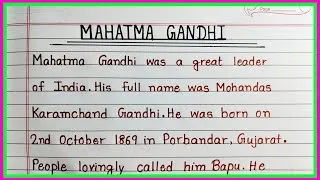 MAHATMA GANDHI
Mahatma Gandhi was a great leader
of India. His full name was Mohandas
Karamchand Gandhi. He was born on
2nd October 1869 in Porbandar, Gujarat.
People lovingly called him Bapu. He